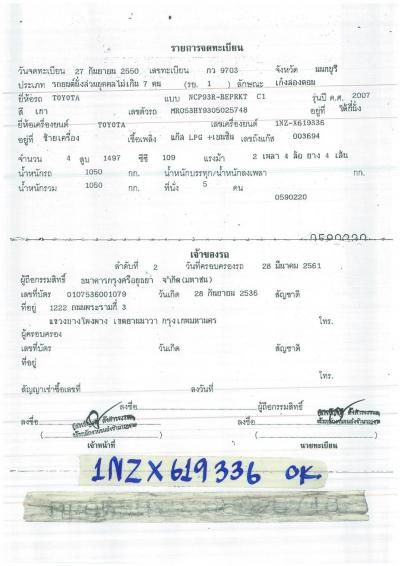 รายการจดทะเบียน
วันจดทะเบียน 27 กันยายน 2550 เลขทะเบียน กว 9703 จังหวัด นนทบุรี
ประเภท รถยนต์นั่งส่วนบุคคลไม่เกิน 7 คน (รย. 1) ลักษณะ เก๋งสองตอน
ยี่ห้อรถ TOYOTA แบบ NCP93R-BEPRKT C1 รุ่นปี ค.ศ. 2007
สี เทา เลขตัวรถ MR053HY9305025748 อยู่ที่ ใต้ที่นั่ง
ยี่ห้อเครื่องยนต์ TOYOTA เลขเครื่องยนต์ 1NZ-X619336
อยู่ที่ ซ้ายเครื่อง เชื้อเพลิง แก๊ส LPG +เบนซิน เลขถังแก๊ส 003694
จำนวน 4 สูบ 1497 ซีซี 109 แรงม้า 2 เพลา 4 ล้อ ยาง 4 เส้น
น้ำหนักรถ 1050 กก. น้ำหนักบรรทุก/น้ำหนักลงเพลา กก.
น้ำหนักรวม 1050 กก. ที่นั่ง 5 คน
0590220
0590220
เจ้าของรถ
ลำดับที่ 2 วันที่ครอบครองรถ 28 มีนาคม 2561
ผู้ถือกรรมสิทธิ์ ธนาคารกรุงศรีอยุธยา จำกัด(มหาชน)
เลขที่บัตร 0107536001079 วันเกิด 28 กันยายน 2536 สัญชาติ
ที่อยู่ 1222 ถนนพระรามที่ 3
แขวงบางโพงพาง เขตยานนาวา กรุงเทพมหานคร โทร.
ผู้ครอบครอง
เลขที่บัตร วันเกิด สัญชาติ
ที่อยู่ โทร.
สัญญาเช่าซื้อเลขที่ ลงวันที่
ลงชื่อ ผู้ถือกรรมสิทธิ์
ลงชื่อ ลงชื่อ
( ) ( )
เจ้าหน้าที่ นายทะเบียน
1NZX619336 OK.